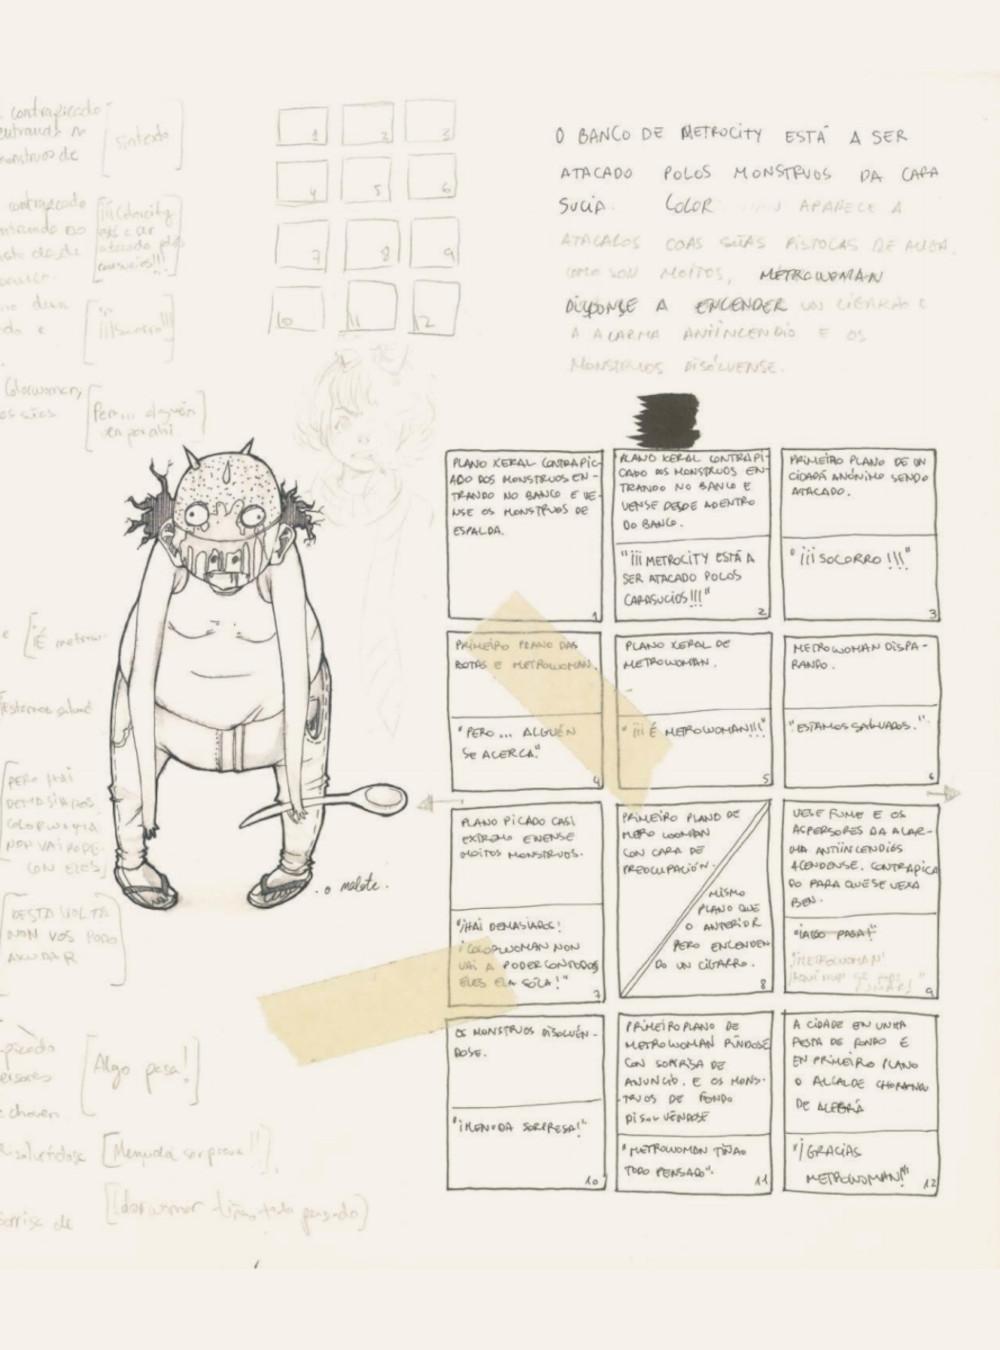 contrapicado
entrando n
monstruos de
sintexto
contrapicado
¡¡¡Colorcity
está a ser
atacado polos
carasucios!!!
¡¡¡Socorro!!!
Colorwoman,
Pero... alguén
ven por ahi
¡É metrow-
PERO ¡HAI
DEMASIADOS,
COLORWOMAN
NON VAI PODE-
CON ELES
DESTA VOLTA
NON VOS PODO
AXUDAR
Algo pasa!
e choven
[Menuda sorpresa!!]
sorrisa de
tiñao todo pensado)
1
2
3
4
5
6
7
8
9
10
11
12
O BANCO DE METROCITY ESTÁ A SER
ATACADO POLOS MONSTRUOS DA CARA
SUCIA. COLOR APARECE A
ATACALOS COAS SÚAS PISTOLAS DE AUGA.
COMO SON MOITOS, METROWOMAN
DISPONSE A ENCENDER UN CIGARRO E
A ALARMA ANTIINCENDIO E OS
MONSTRUOS DISÓLVENSE.
o malote.
PLANO XERAL CONTRAPIC-
ADO DOS MONSTRUOS EN-
TRANDO NO BANCO E VE-
NSE OS MONSTRUOS DE
ESPALDA.
1
PLANO XERAL CONTRAPI-
CADO DOS MONSTRUOS EN-
TRANDO NO BANCO E
VENSE DESDE ADENTRO
DO BANCO.
"¡¡¡METROCITY ESTÁ A
SER ATACADO POLOS
CARASUCIOS!!!"
2
PRIMEIRO PLANO DE UN
CIDADÁ ANÓNIMO SENDO
ATACADO.
"¡¡¡SOCORRO!!!"
3
PRIMEIRO PLANO DAS
BOTAS E METROWOMAN.
"PERO... ALGUÉN
SE ACERCA"
4
PLANO XERAL DE
METROWOMAN.
"¡¡¡É METROWOMAN!!!"
5
METROWOMAN DISPA-
RANDO.
"ESTAMOS SALVADOS."
6
PLANO PICADO CASI
EXTREMO E VENSE
MOITOS MONSTRUOS.
"¡HAI DEMASIADOS!
¡COLORWOMAN NON
VAI A PODER CON TODOS
ELES ELA SOLA!"
7
PRIMEIRO PLANO DE
METROWOMAN
CON CARA DE
PREOCUPACIÓN.
MISMO
PLANO QUE
O ANTERIOR
PERO ENCENDEN-
DO UN CIGARRO.
8
VESE FUME E OS
ASPERSORES DA ALAR-
MA ANTIINCENDIOS
ACENDENSE. CONTRAPICA
DO PARA QUE SE VEXA
BEN.
"¡ALGO PASA!"
¡METROWOMAN!
9
OS MONSTRUOS DISOLVÉN-
DOSE.
"¡MENUDA SORPRESA!"
10
PRIMEIRO PLANO DE
METROWOMAN RÍNDOSE
CON SORRISA DE
ANUNCIO. E OS MONS-
TRUOS DE FONDO
DISOLVÉNDOSE
"METROWOMAN TIÑAO
TODO PENSADO".
11
A CIDADE EN UNHA
FESTA DE FONDO E
EN PRIMEIRO PLANO
O ALCALDE CHORANDO
DE ALEGRÍA
"¡GRACIAS
METROWOMAN!"
12